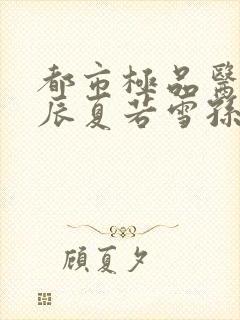 都市極品醫
辰夏若雪孫
顾夏夕